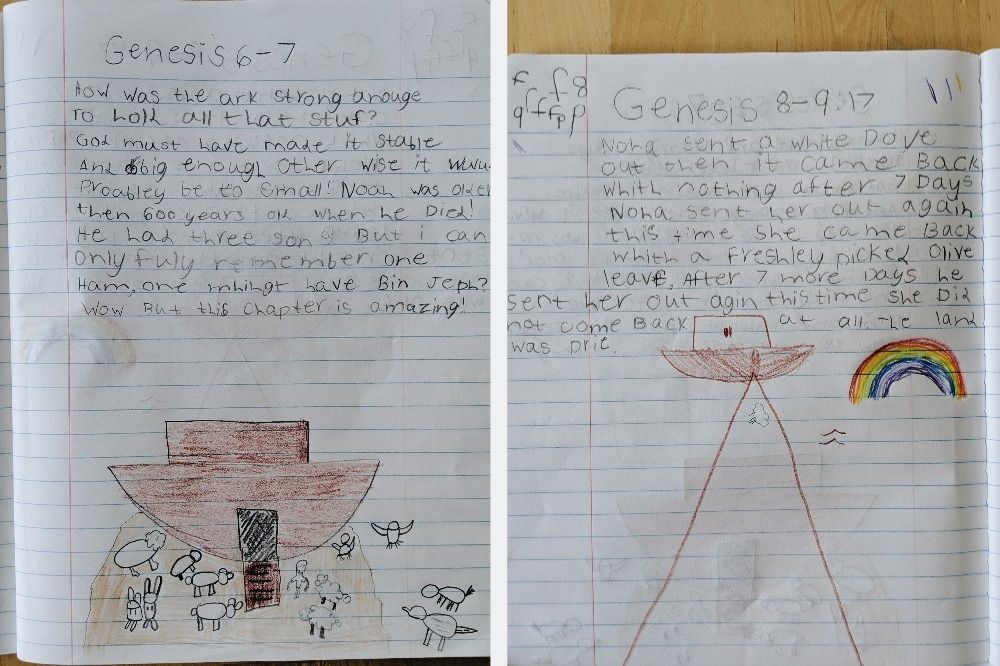 Genesis 6-7
How was the ark strong anouge
To hold all that stuf?
God must have made it stable
And big enough other wise it
Proabley be to small! Noah was older
then 600 years old when he Died!
He had three sons But i can
only fuly remember one
Ham, one mhingt have Bin Jeph?
Wow But this chapter is amazing!
f f f 8
q f f p p
Genesis 8-9:17
Noha sent a white Dove
out then it came Back
whith nothing after 7 Days
Noha sent her out again
this time she came Back
whith a Freshley picked Olive
leave, After 7 more Days he
sent her out agin this time she Did
not come Back at all. The land
was drie.